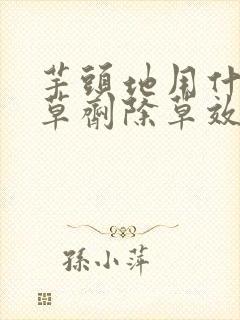 芋頭地用什
草劑除草效
孫小萍